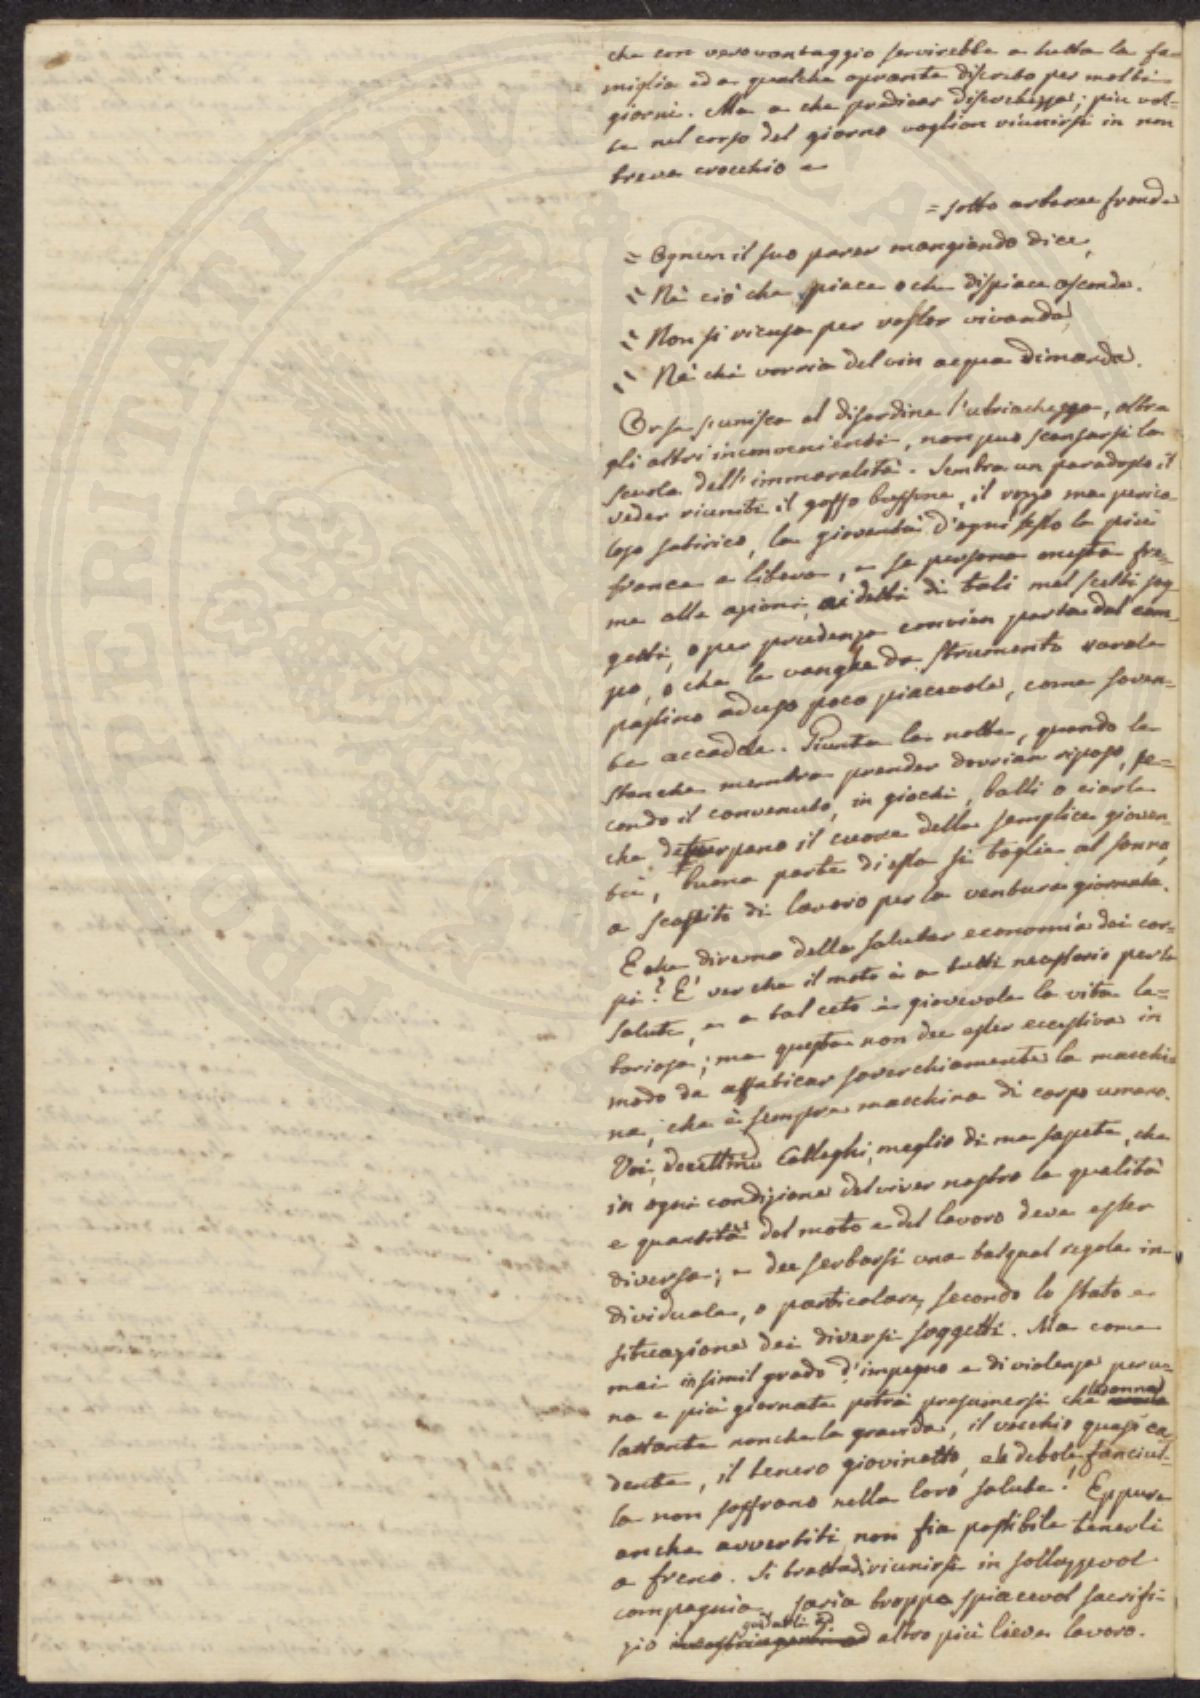 che con vero vantaggio servirebbe a tutta la fa=
miglia ed a qualche oprante discreto per molti
giorni. Ma a che predicar discretezza; più vol=
te nel corso del giorno voglion riunirsi in non
breve crocchio e
= sotto arboree fronde
= Ognun il suo parer mangiando dice,
= Nè ciò che piace o che dispiace asconde.
= Non si ricusa per roster vivanda,
= Nè chi vorria del vin acqua dimanda.
Or se s'unisce al disordine l'ubriachezza, oltre
gli altri inconvenienti, non può scansarsi la
scuola dell'immoralità. Sembra un paradosso il
veder riuniti il goffo buffone, il rozzo ma perico
loso satirico, la gioventù d'ogni sesto la più
franca e libera, e se persona onesta fre=
me alle azioni, ai detti di tali mal scelti sog
getti, o per prudenza convien parta dal cam=
po, o che le vanghe da strumento rurale
passino ad uso poco piacevole, come soven=
te accadde. Giunta la notte, quando le
stanche membra prender dovrian riposo, se=
condo il convenuto, in giochi, balli o ciarle
che deturpano il cuore della semplice gioven=
tù, buona parte di essa si toglie al sonno,
a scapito di lavoro per la ventura giornata.
E che diremo della salutar economia dei cor=
pi? E' ver che il moto è a tutti necessario per la
salute, e a tal ceto è giovevole la vita la=
boriosa; ma questa non dee esser eccessiva in
modo da affaticar soverchiamente la macchi=
na, che è sempre macchina di corpo umano.
Voi, Colleghi, meglio di me sapete, che
in ogni condizione del viver nostro la qualità
e quantità del moto e del lavoro deve esser
diversa; e dee serbarsi una tal qual regola in=
dividuale, o particolare, secondo lo stato e
situazione dei diversi soggetti. Ma come
mai in simil grado d'impegno e di violenza per u=
na e più giornate potrà presumersi che la donna
lattante nonchè la gravida, il vecchio quasi ca
dente, il tenero giovinetto, e la debole fanciul=
la non soffrano nella loro salute! Eppure
anche avvertiti non fia possibile tenerli
a freno. Si tratta di riunirsi in sollazzevol
compagnia, saria troppo spiacevol sacrifi=
zio guidarli ad altro più lieve lavoro.